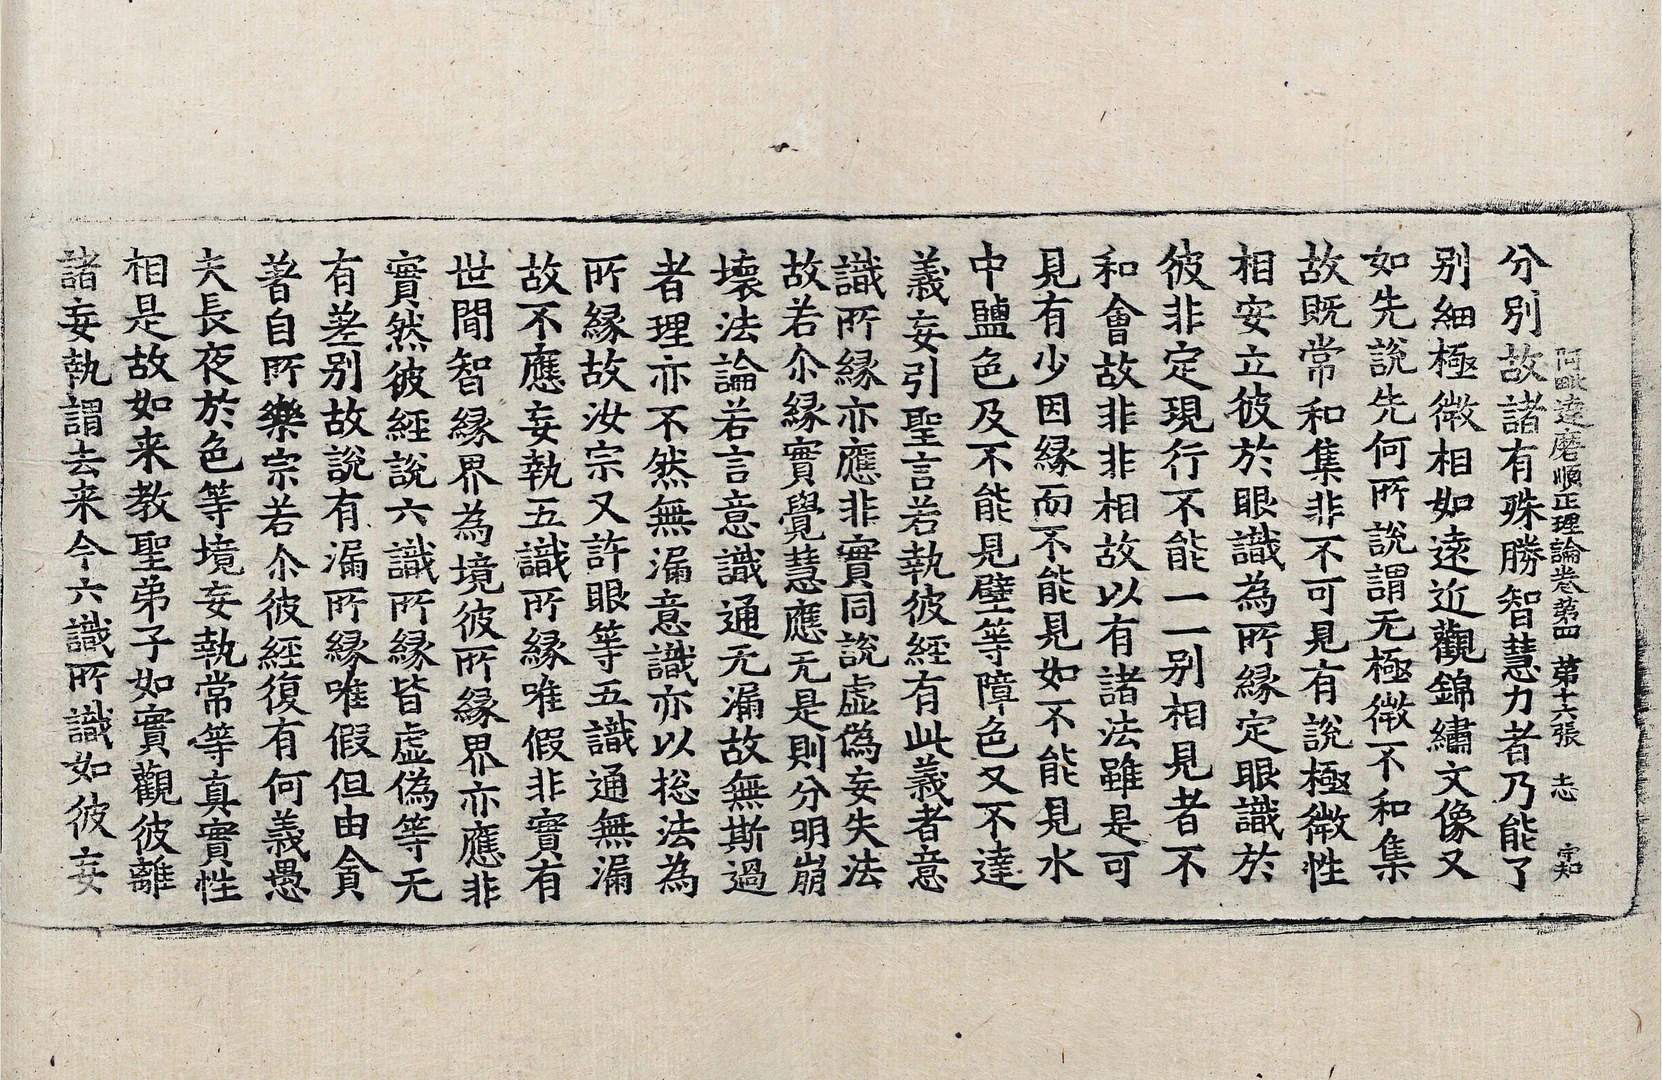 阿毗達磨順正理論卷第四 第十六張 志 宗知
分別故諸有殊勝智慧力者乃能了
別細極微相如遠近觀錦繡文像又
如先說先何所說謂无極微不和集
故既常和集非不可見有說極微性
相安立彼於眼識為所緣定眼識於
彼非定現行不能一一別相見者不
和會故非非相故以有諸法雖是可
見有少因緣而不能見如不能見水
中鹽色及不能見壁等障色又不達
義妄引聖言若執彼經有此義者意
識所緣亦應非實同說虛偽妄失法
故若尒緣實覺慧應无是則分明崩
壞法論若言意識通无漏故無斯過
者理亦不然無漏意識亦以捴法為
所緣故汝宗又許眼等五識通無漏
故不應妄執五識所緣唯假非實有
世間智緣界為境彼所緣界亦應非
實然彼經說六識所緣皆虛偽等无
有差別故說有漏所緣唯假但由貪
著自所樂宗若尒彼經復有何義愚
夫長夜於色等境妄執常等真實性
相是故如来教聖弟子如實觀彼離
諸妄執謂去来今六識所識如彼妄